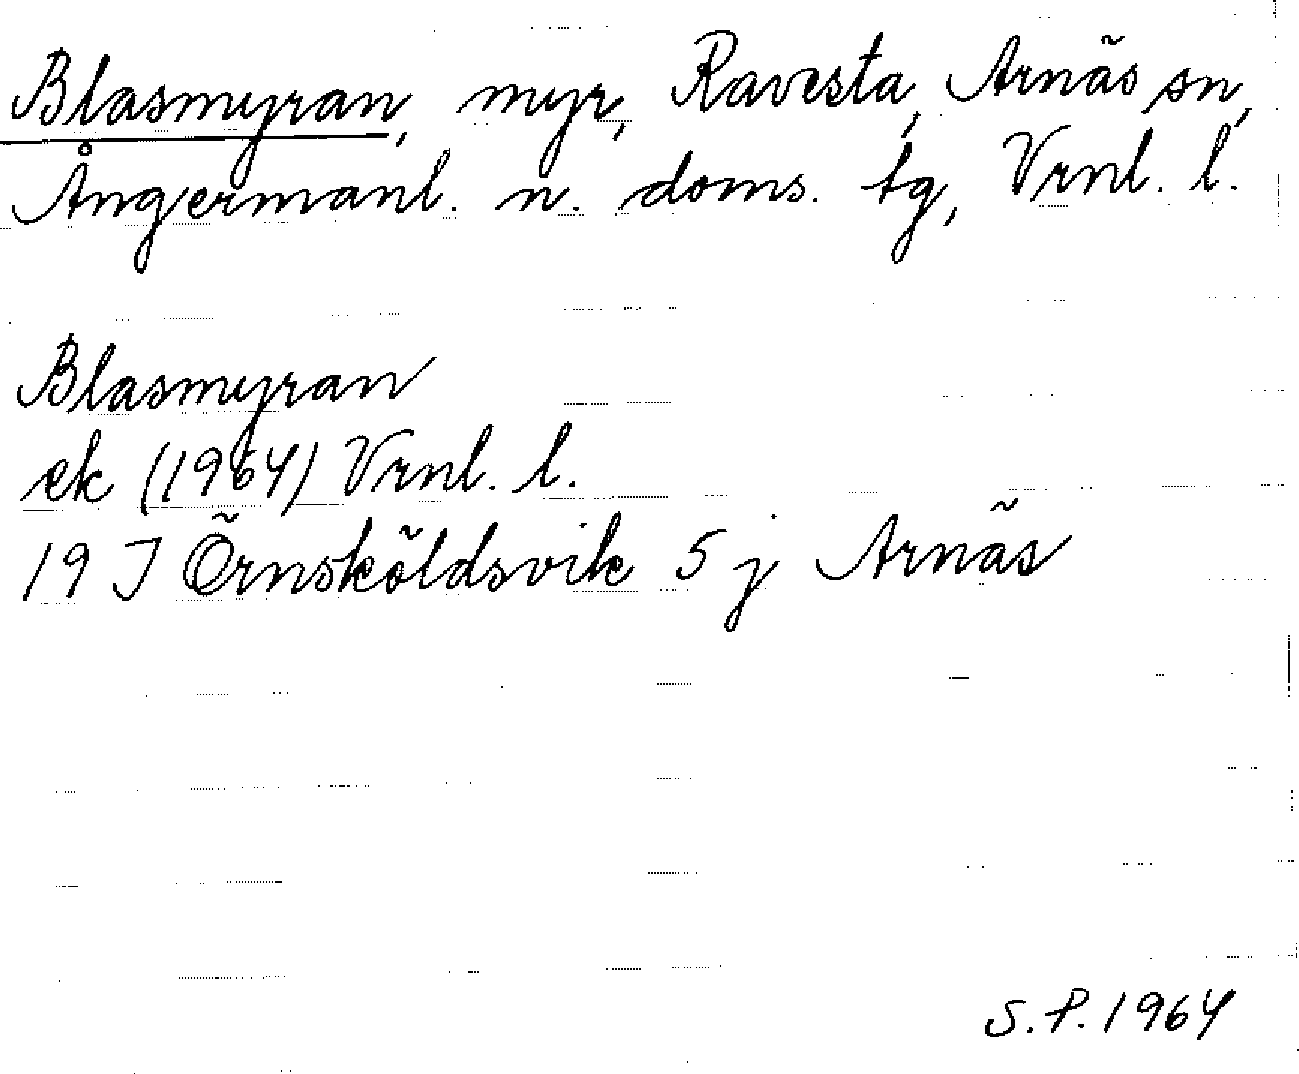 Blasmyran, myr, Ravesta, Arnäs sn,
Ångermanl. n. doms. tg, Vrnl. l.
Blasmyran
ek (1964) Vrnl. l.
19 J Örnsköldsvik 5 j Arnäs
S.P. 1964